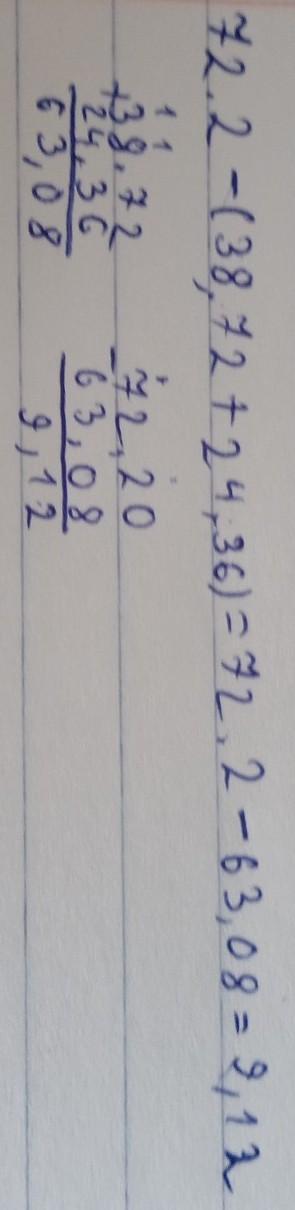 72,2-(38,72+24,36)=72,2-63,08=9,12
1 1
+38,72
24,36
63,08
-72,20
63,08
9,12